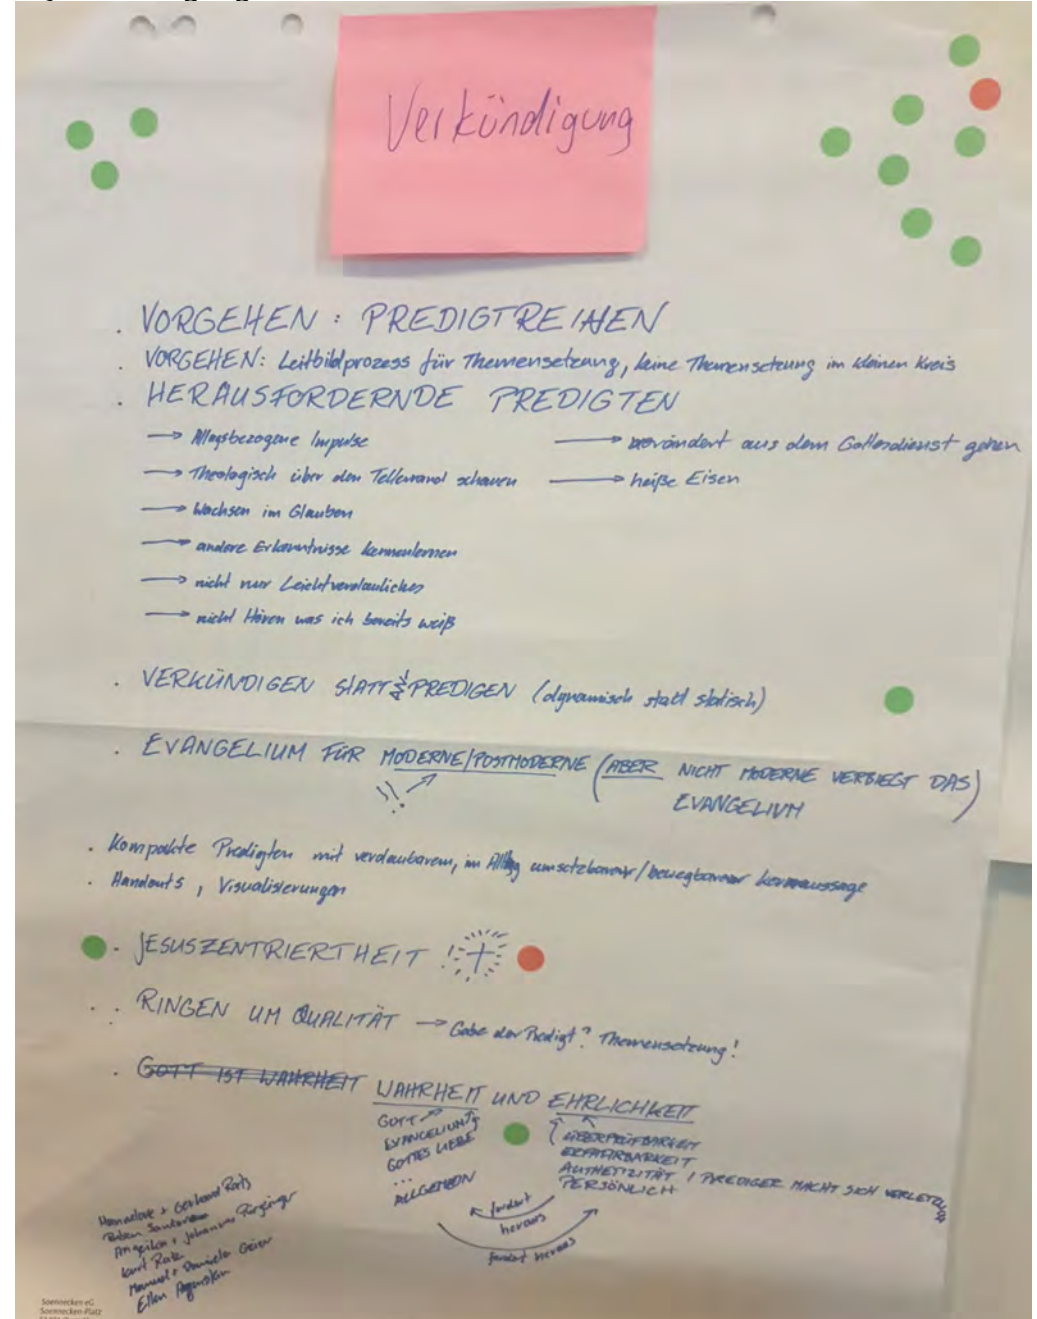 Verkündigung
. VORGEHEN: PREDIGTREIHEN
. VORGEHEN: Leitbildprozess für Themensetzung, keine Themensetzung im kleinen Kreis
. HERAUSFORDERNDE PREDIGTEN
→ Alltagsbezogene Impulse
→ verändert aus dem Gottesdienst gehen
→ Theologisch über den Tellerrand schauen
→ heiße Eisen
→ Wachsen im Glauben
→ andere Erkenntnisse kennenlernen
→ nicht nur Leichtverdauliches
→ nicht Hören was ich bereits weiß
. VERKÜNDIGEN STATT PREDIGEN (dynamisch statt statisch)
. EVANGELIUM FÜR MODERNE/POSTMODERNE (ABER NICHT MODERNE VERBIEGT DAS
EVANGELIUM)
. Kompakte Predigten mit verdaubarem, im Alltag umsetzbarer/bewegbarer Kernaussage
. Handouts, Visualisierungen
. JESUSZENTRIERTHEIT !
. RINGEN UM QUALITÄT → Gabe der Predigt? Themensetzung!
. GOTT IST WAHRHEIT WAHRHEIT UND EHRLICHKEIT
GOTT
EVANGELIUM
GOTTES LIEBE
...
ALLGEMEIN
ÜBERPRÜFBARKEIT
ERFAHRBARKEIT
AUTHETIZITÄT / PREDIGER MACHT SICH
PERSÖNLICH
fordert
heraus
fordert heraus
Hannelore + Gerhard
Angelika + Johannes
Kurt
Manuel + Daniela Geier
Ellen
Soennecken eG
Soennecken-Platz